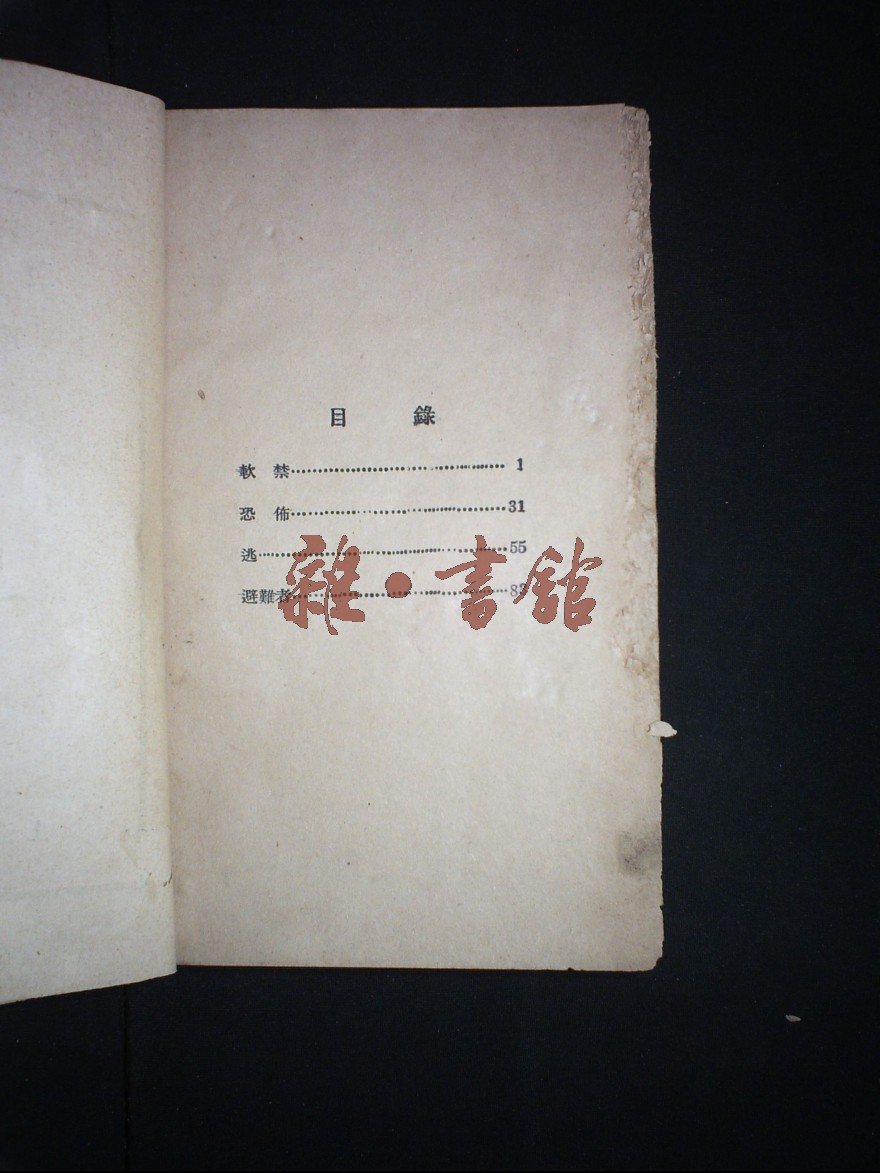 目 錄
軟 禁 1
恐 佈 31
逃 55
避難者
雜·書館